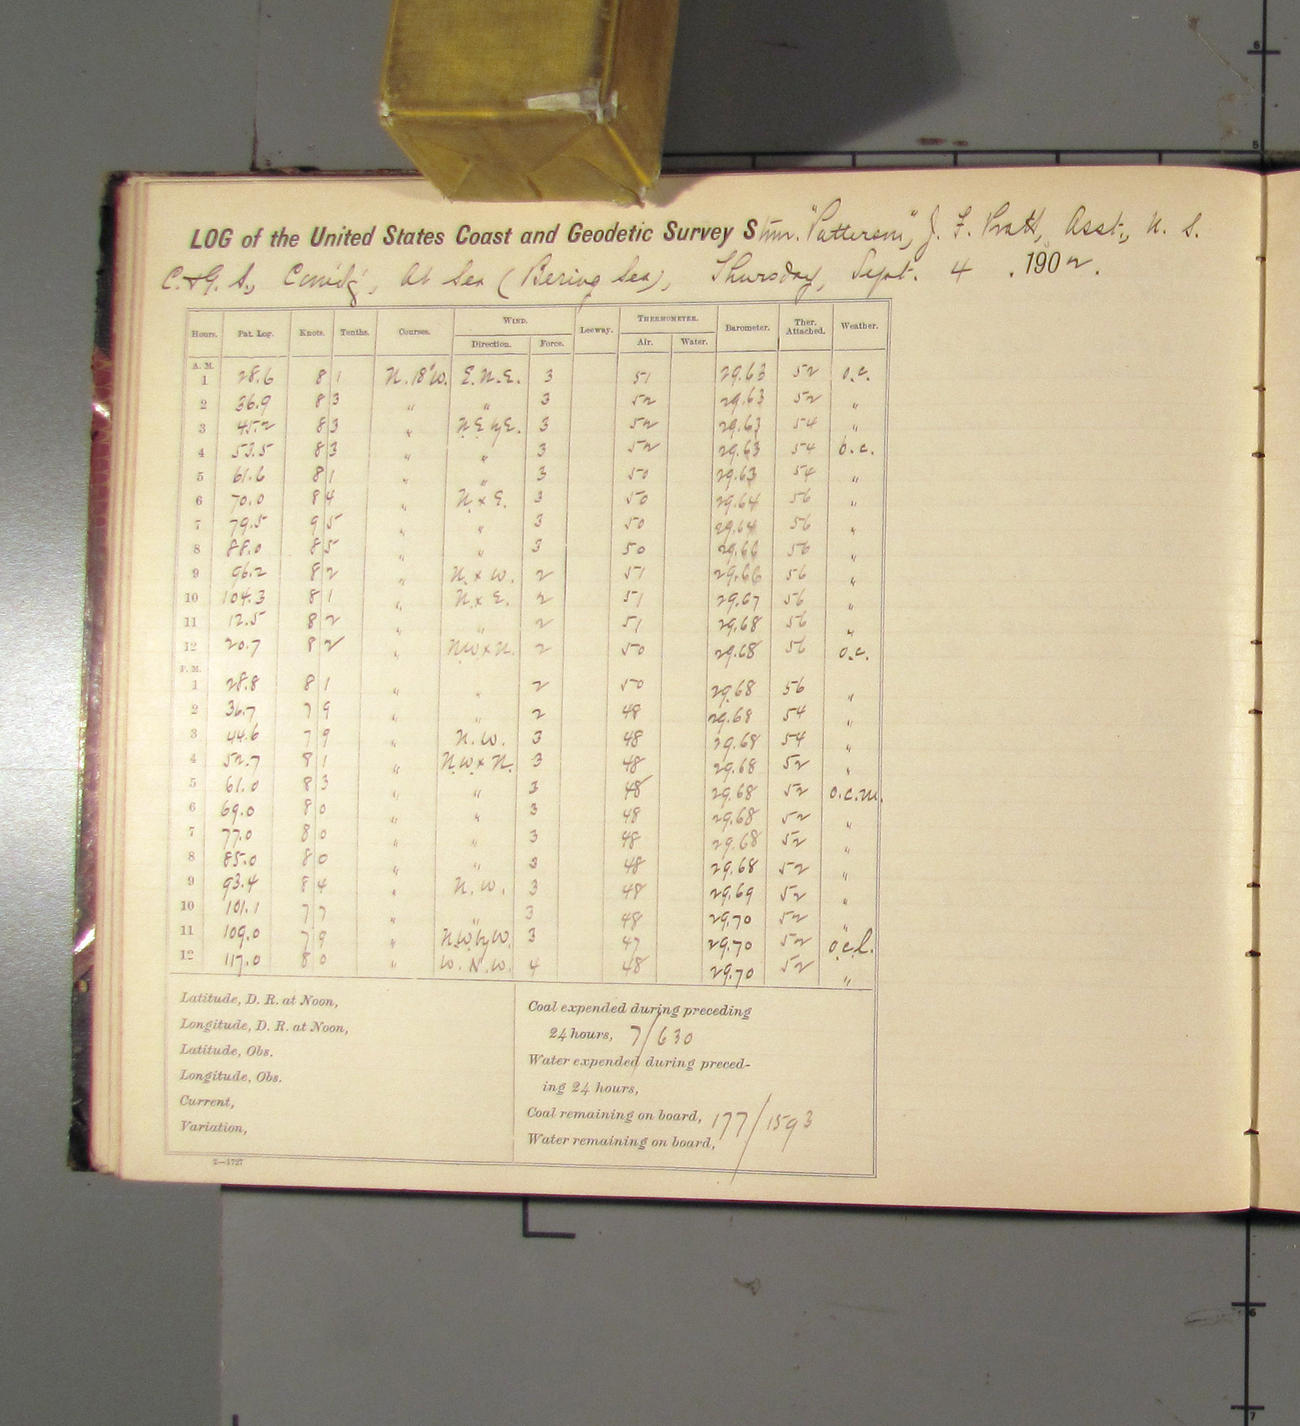 LOG of the United States Coast and Geodetic Survey Stmr. "Patterson", J. F. Pratt, Asst., U. S.
C. & G. S., Comd'g, At Sea (Bering Sea), Thursday, Sept. 4, 1902.
Hours. Pat. Log. Knots. Tenths. Courses. WIND. Leeway. THERMOMETER. Barometer. Ther. Attached. Weather.
Direction. Force. Air. Water.
A. M.
1 28.6 8 1 N. 18° W. E.N.E. 3 51 29.63 52 o.c.
2 36.9 8 3 " " 3 52 29.63 52 "
3 45.2 8 3 " N.E. by E. 3 52 29.63 54 "
4 53.5 8 3 " " 3 52 29.63 54 o.c.
5 61.6 8 1 " " 3 50 29.63 54 "
6 70.0 8 4 " N. x E. 3 50 29.64 56 "
7 79.5 9 5 " " 3 50 29.64 56 "
8 88.0 8 5 " " 3 50 29.66 56 "
9 96.2 8 2 " N. x W. 2 51 29.66 56 "
10 104.3 8 1 " N. x E. 2 51 29.67 56 "
11 12.5 8 2 " " 2 51 29.68 56 "
12 20.7 8 2 " NW x N. 2 50 29.68 56 o.c.
P. M.
1 28.8 8 1 " " 2 50 29.68 56 "
2 36.7 7 9 " " 2 48 29.68 54 "
3 44.6 7 9 " N.W. 3 48 29.68 54 "
4 52.7 8 1 " N.W. x N. 3 48 29.68 52 "
5 61.0 8 3 " " 3 48 29.68 52 o.c.m.
6 69.0 8 0 " " 3 48 29.68 52 "
7 77.0 8 0 " " 3 48 29.68 52 "
8 85.0 8 0 " " 3 48 29.68 52 "
9 93.4 8 4 " N.W. 3 48 29.69 52 "
10 101.1 7 7 " " 3 48 29.70 52 "
11 109.0 7 9 " N.W. by W. 3 47 29.70 52 o.c.l.
12 117.0 8 0 " W.N.W. 4 48 29.70 52 "
Latitude, D. R. at Noon,
Longitude, D. R. at Noon,
Latitude, Obs.
Longitude, Obs.
Current,
Variation,
Coal expended during preceding
24 hours, 7/630
Water expended during preced-
ing 24 hours,
Coal remaining on board, 177/1593
Water remaining on board,
2—1727
5
6
6
7